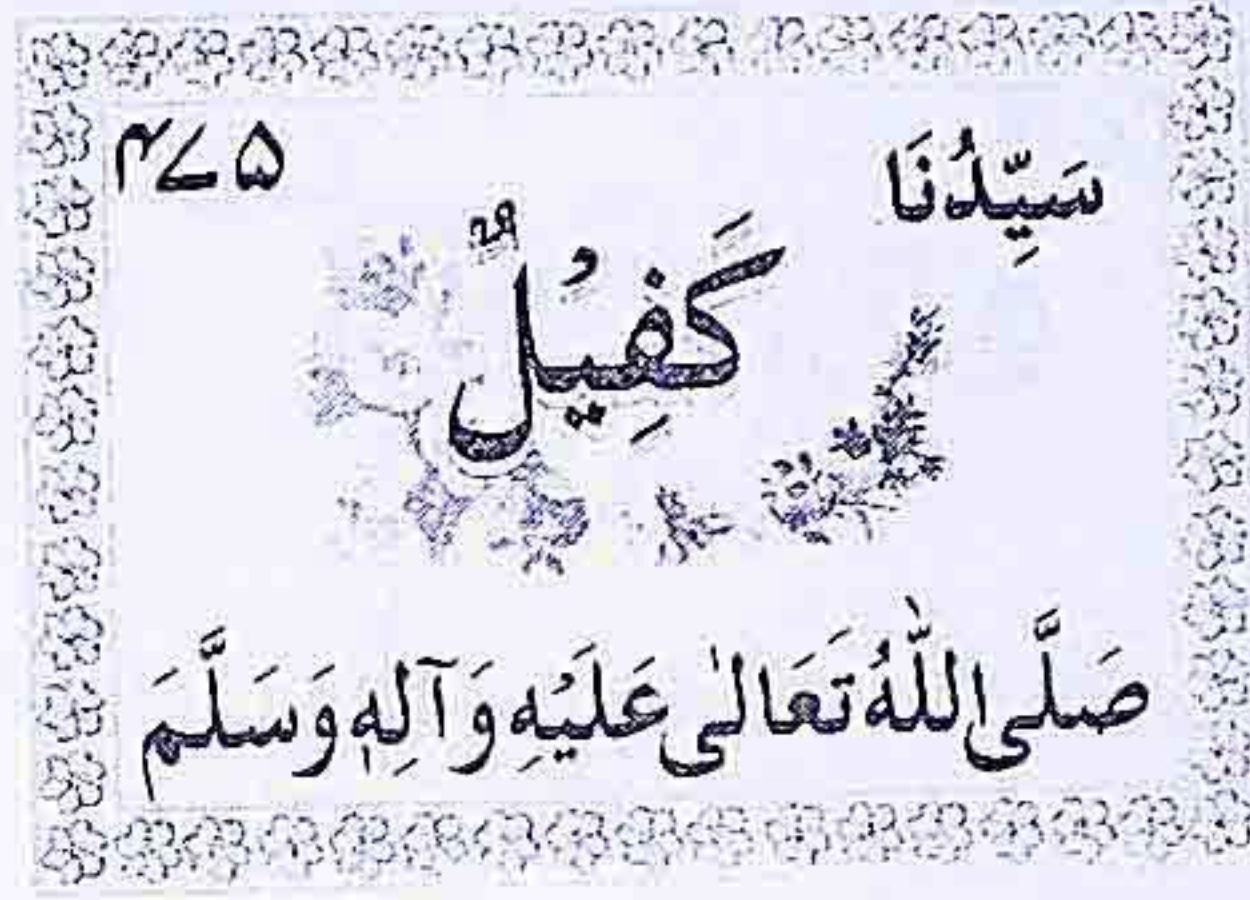 سَيِّدُنَا
۴۷۵
كَفِيْلٌ
صَلَّى اللّٰهُ تَعَالٰى عَلَيْهِ وَآلِهٖ وَسَلَّمَ